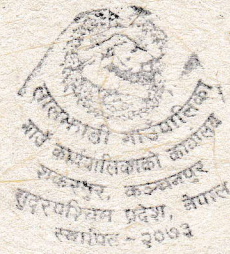 लालझाडी गाउँपालिका
गाउँ कार्यपालिकाको कार्यालय
शंकरपुर, कञ्चनपुर
सुदूरपश्चिम प्रदेश, नेपाल
स्थापित - २०७३